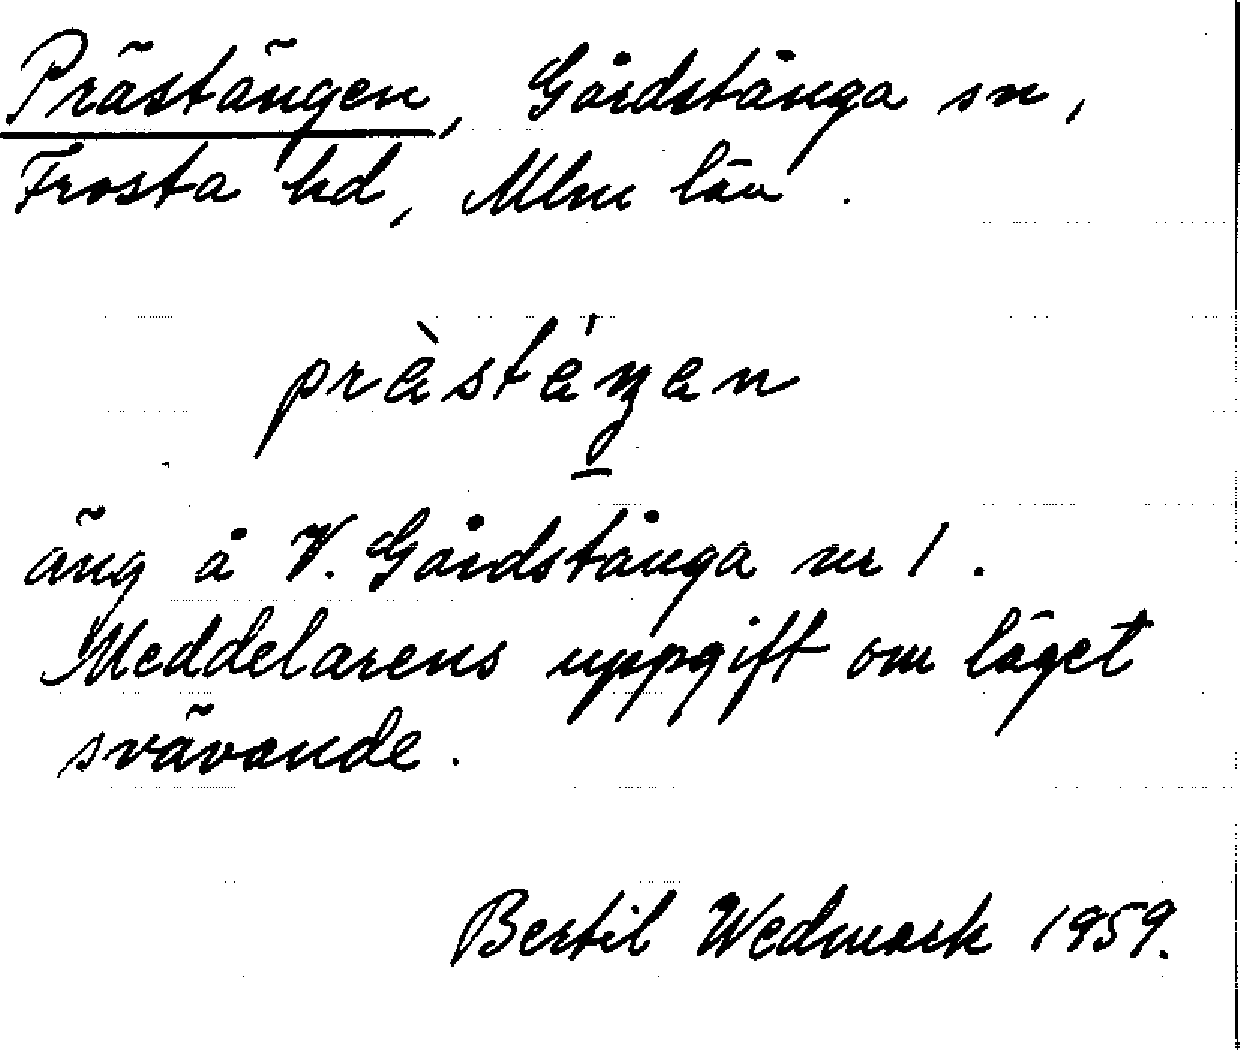 Prästängen, Gårdstånga sn,
Frosta hd, Mlm län.
prästäŋen
äng å V. Gårdstånga nr 1.
Meddelarens uppgift om läget
svävande.
Bertil Wedmark 1959.